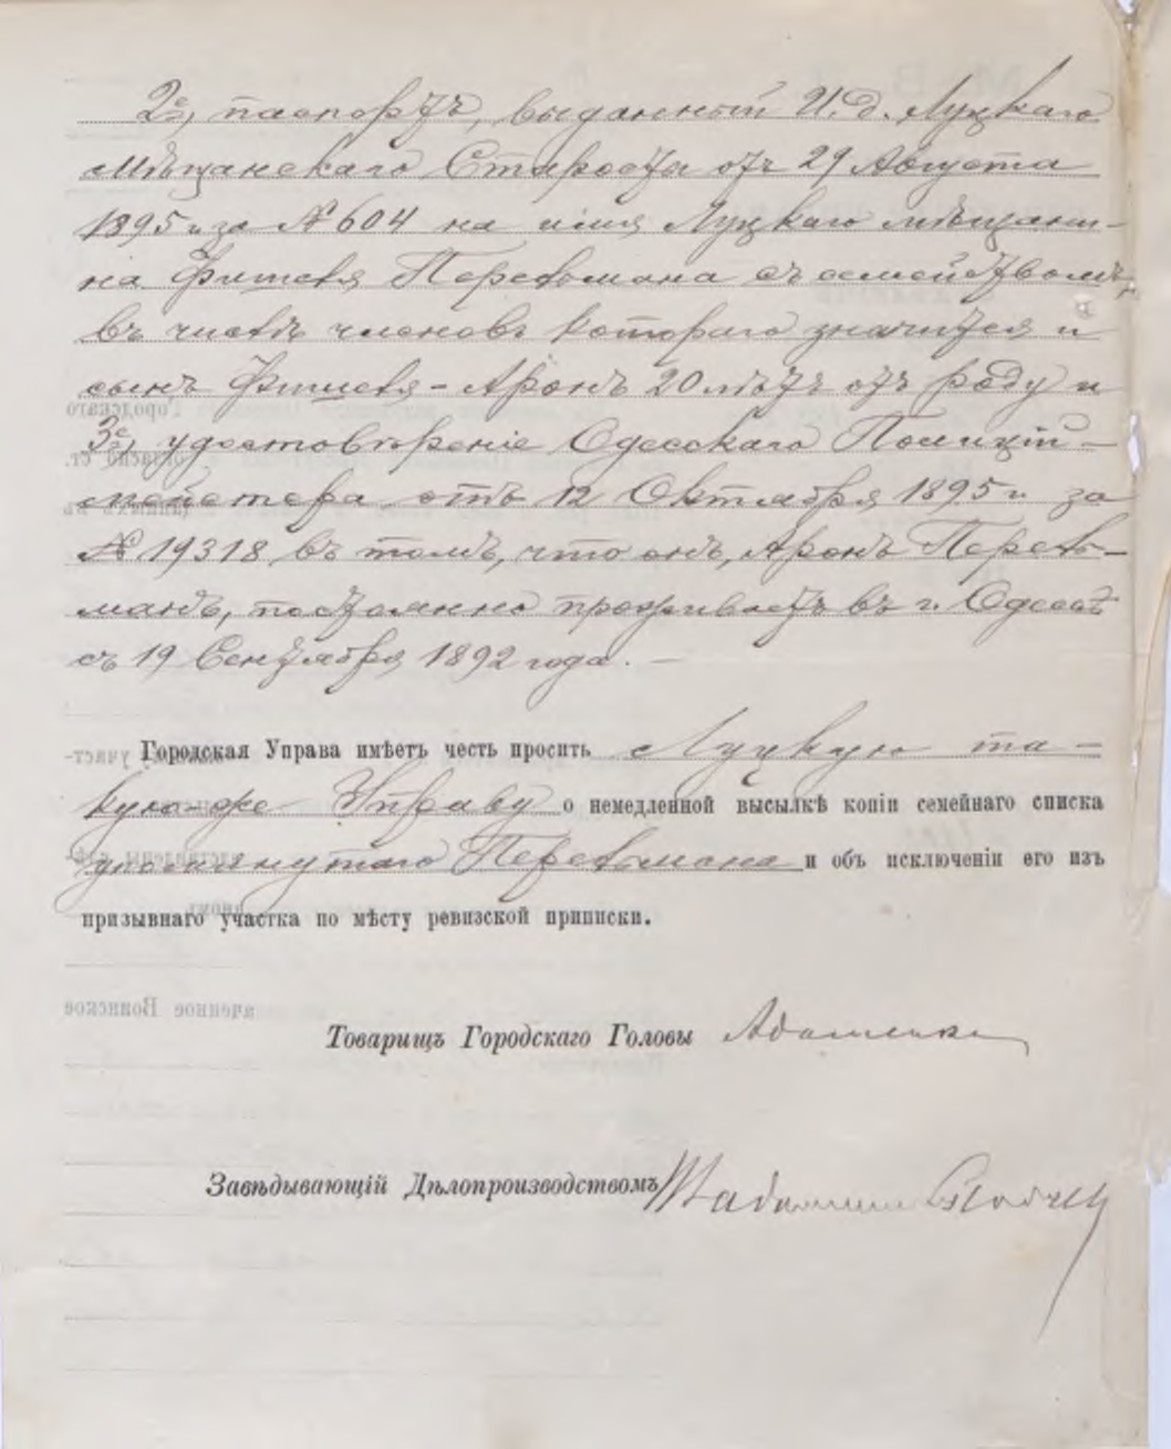 2е, паспортъ, выданный И. д. Луцкаго
Мѣщанскаго Старосты отъ 29 Августа
1895 г. за № 604 на имя Луцкаго мѣщани-
на Фишеля Перельмана съ семействомъ,
въ числѣ членовъ котораго значится и
сынъ Фишеля - Аронъ 20 лѣтъ отъ роду и
3е, удостовѣреніе Одесскаго Полицій-
мейстера отъ 12 Октября 1895 г. за
№ 19318 въ томъ, что онъ, Аронъ Перель-
манъ, постоянно проживаетъ въ г. Одессѣ
съ 19 Сентября 1892 года. —
Городская Управа имѣетъ честь просить Луцкую та-
кую-же Управу о немедленной высылкѣ копіи семейнаго списка
упомянутаго Перельмана и объ исключеніи его изъ
призывнаго участка по мѣсту ревизской приписки.
Товарищъ Городскаго Головы
Завѣдывающій Дѣлопроизводствомъ